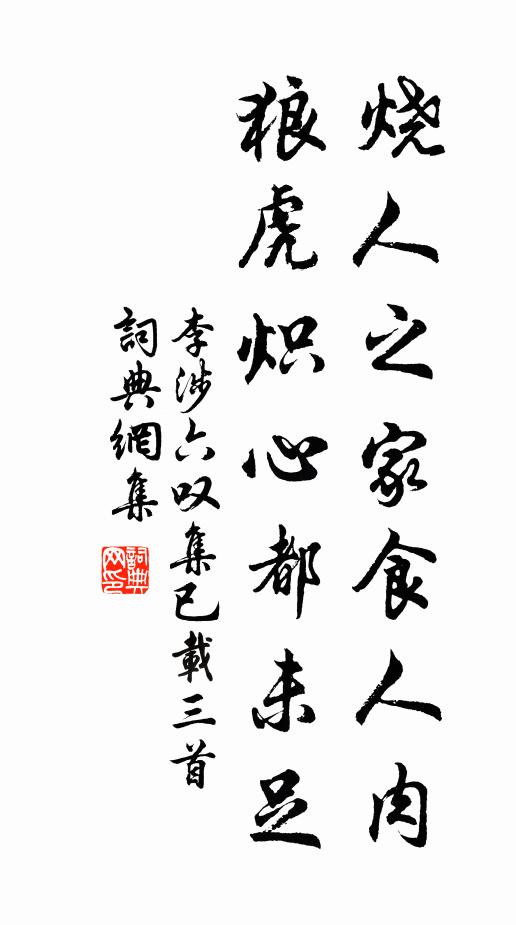 烧人之家食人肉
狼虎炽心都未足
李涉六叹集已載三首
詞典網集
詞典网印